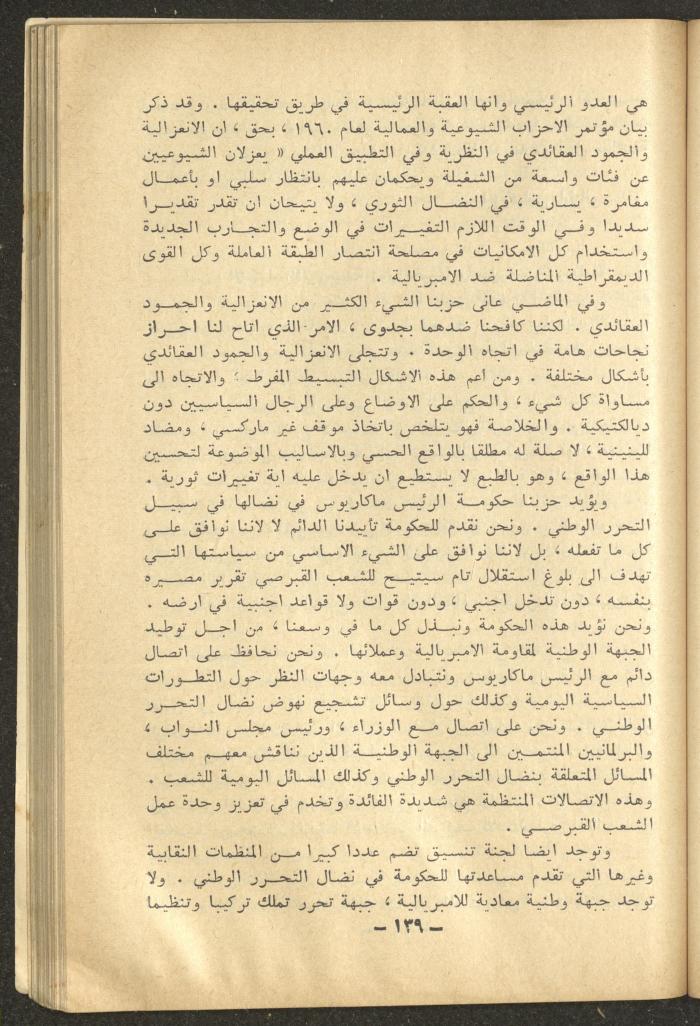 هي العدو الرئيسي وانها العقبة الرئيسية في طريق تحقيقها . وقد ذكر
بيان مؤتمر الاحزاب الشيوعية والعمالية لعام ١٩٦٠ ، بحق ، ان الانعزالية
والجمود العقائدي في النظرية وفي التطبيق العملي « يعزلان الشيوعيين
عن فئات واسعة من الشغيلة ويحكمان عليهم بانتظار سلبي او بأعمـــال
مغامرة ، يسارية ، في النضـال الثوري ، ولا يتيحان ان تقدر تقديـرا
سديدا وفـي الوقت اللازم التغيـيرات في الوضع والتجـارب الجديدة
واستخدام كل الامكانيات في مصلحة انتصار الطبقة العاملة وكل القوى
الديمقراطية المناضلة ضد الامبريالية .
وفي الماضـي عانى حزبنا الشيء الكثـير من الانعزالية والجمـود
العقائدي . لكننا كافحنا ضدهما بجدوى ، الامر الذي اتاح لنا احـراز
نجاحات هامة في اتجاه الوحدة . وتتجلى الانعزالية والجمود العقائدي
بأشكال مختلفة . ومن اعم هذه الاشكال التبسيط المفرط ؛ والاتجاه الى
مساواة كل شيء ، والحكم على الاوضاع وعلى الرجال السياسيين دون
ديالكتيكية . والخلاصة فهو يتلخص باتخاذ موقف غير ماركسي ، ومضاد
للينينية ، لا صلة له مطلقا بالواقع الحسي وبالاساليب الموضوعة لتحسين
هذا الواقع ، وهو بالطبع لا يستطيع ان يدخل عليه اية تغييرات ثورية .
ويؤيد حزبنا حكومـة الرئيس ماكاريوس في نضالها في سبيـل
التحرر الوطني . ونحن نقدم للحكومة تأييدنا الدائم لا لاننا نوافق علـى
كل ما تفعله ، بل لاننا نوافق على الشيء الاساسي من سياستها التـي
تهدف الى بلوغ استقلال تام سيتيـح للشعب القبرصي تقرير مصـيره
بنفسه ، دون تدخل اجنبي ، ودون قوات ولا قواعد اجنبية في ارضه .
ونحن نؤيد هذه الحكومة ونبـذل كل ما في وسعنا ، من اجـل توطيد
الجبهة الوطنية لمقاومة الامبريالية وعملائها . ونحن نحافظ على اتصال
دائم مع الرئيس ماكاريوس ونتبادل معه وجهات النظر حول التطـورات
السياسية اليومية وكذلك حول وسائل تشجيع نهوض نضال التحـرر
الوطنـي . ونحن على اتصال مـع الوزراء ، ورئيس مجلس النـواب ،
والبرلمانيين المنتمـين الى الجبهة الوطنيـة الذين نناقش معهـم مختلف
المسائل المتعلقة بنضال التحرر الوطني وكذلك المسائل اليومية للشعب .
وهذه الاتصالات المنتظمة هي شديدة الفائدة وتخدم في تعزيز وحدة عمل
الشعب القبرصـي .
وتوجد ايضا لجنة تنسيق تضم عددا كبيرا مـن المنظمات النقابية
وغيرها التي تقدم مساعدتها للحكومة في نضال التحـرر الوطني . ولا
توجد جبهة وطنية معادية للامبريالية ، جبهة تحرر تملك تركيبا وتنظيما
– ١٣٩ –